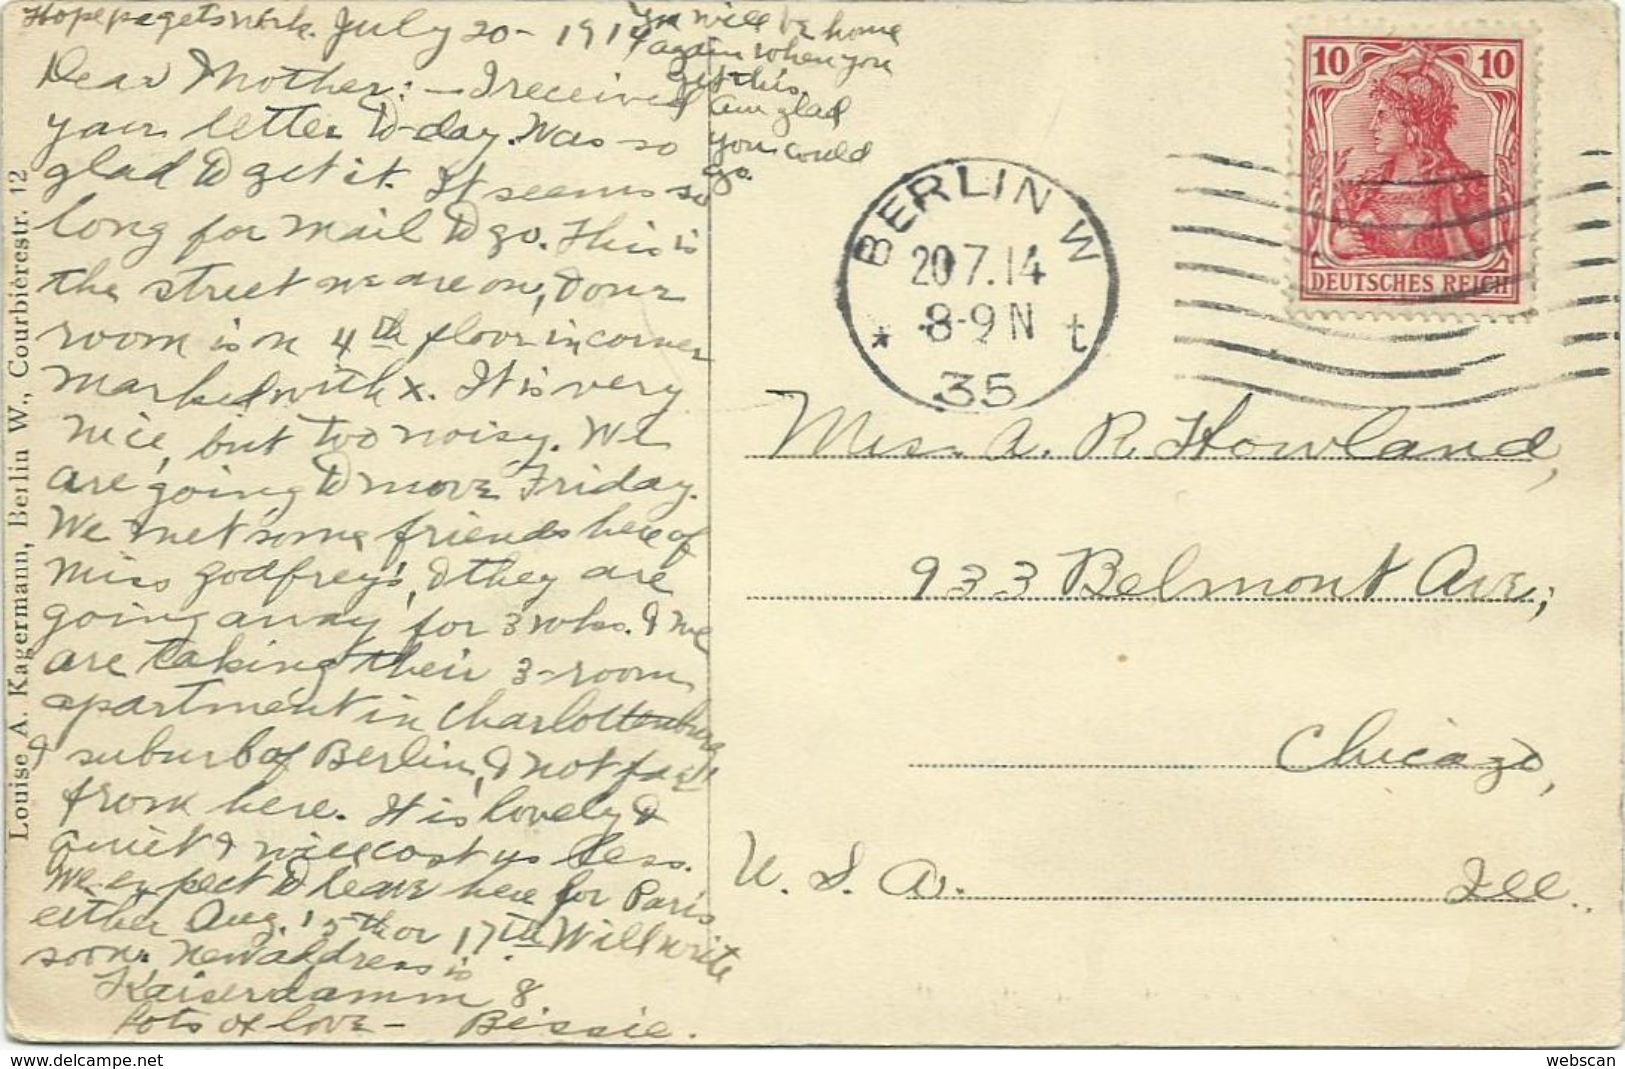 Hope papa gets work. July 20 - 1914
Dear Mother: — I received
your letter to-day. Was so
glad to get it. It seems so
long for mail to go. This is
the street we are on, & our
room is on 4th floor in corner
marked with x. It is very
nice, but too noisy. We
are going to move Friday.
We met some friends here of
Miss Godfrey's, & they are
going away for 3 wks. & we
are taking their 3-room
apartment in Charlottenburg
a suburb of Berlin, & not far
from here. It is lovely &
quiet & will cost us less.
We expect to leave here for Paris
either Aug. 15th or 17th. Will write
soon. New address is
Kaiserdamm 8.
Lots of love - Bessie.
You will be home
again when you
get this.
Am glad
you could
go.
Louise A. Kagermann, Berlin W., Courbièrestr. 12
BERLIN W
20 7.14
8-9 N
* t
35
10 10
DEUTSCHES REICH
Mrs. A. R. Howland,
933 Belmont Ave;
Chicago,
U. S. A. Ill.
https://www.delcampe.net
webscan